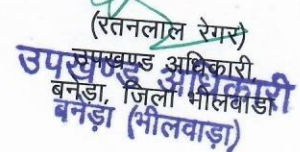 (रतनलाल रेगर)
उपखण्ड अधिकारी,
बनेड़ा, जिला भीलवाडा
उपखण्ड अधिकारी
बनेड़ा (भीलवाड़ा)